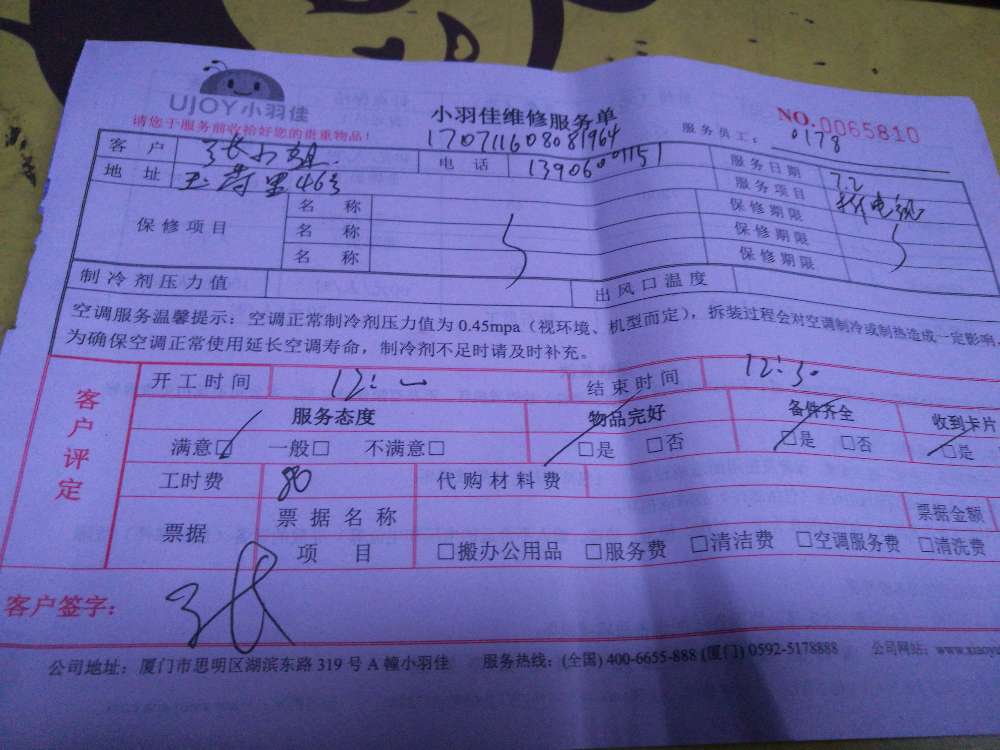 UJOY小羽佳
小羽佳维修服务单
NO.0065810
请您于服务前收拾好您的贵重物品!
170711608081964
服务员工: 0178
客户 张小姐 电话 13906001151 服务日期 7.2
地址 玉荷里46号 服务项目
保修项目 名称 保修期限
名称 保修期限
名称 保修期限
制冷剂压力值 出风口温度
空调服务温馨提示:空调正常制冷剂压力值为0.45mpa(视环境、机型而定),拆装过程会对空调制冷或制热造成一定影响,
为确保空调正常使用延长空调寿命,制冷剂不足时请及时补充。
客户评定
开工时间 12:一 结束时间 12:30
服务态度 物品完好 备件齐全 收到卡片
满意☑ 一般□ 不满意□ □是 □否 □是 □否 □是
工时费 80 代购材料费
票据 票据名称 票据金额
项目 □搬办公用品 □服务费 □清洁费 □空调服务费 □清洗费
客户签字: 张
公司地址:厦门市思明区湖滨东路319号A幢小羽佳 服务热线:(全国)400-6655-888(厦门)0592-5178888 公司网站:www.xiaoyu